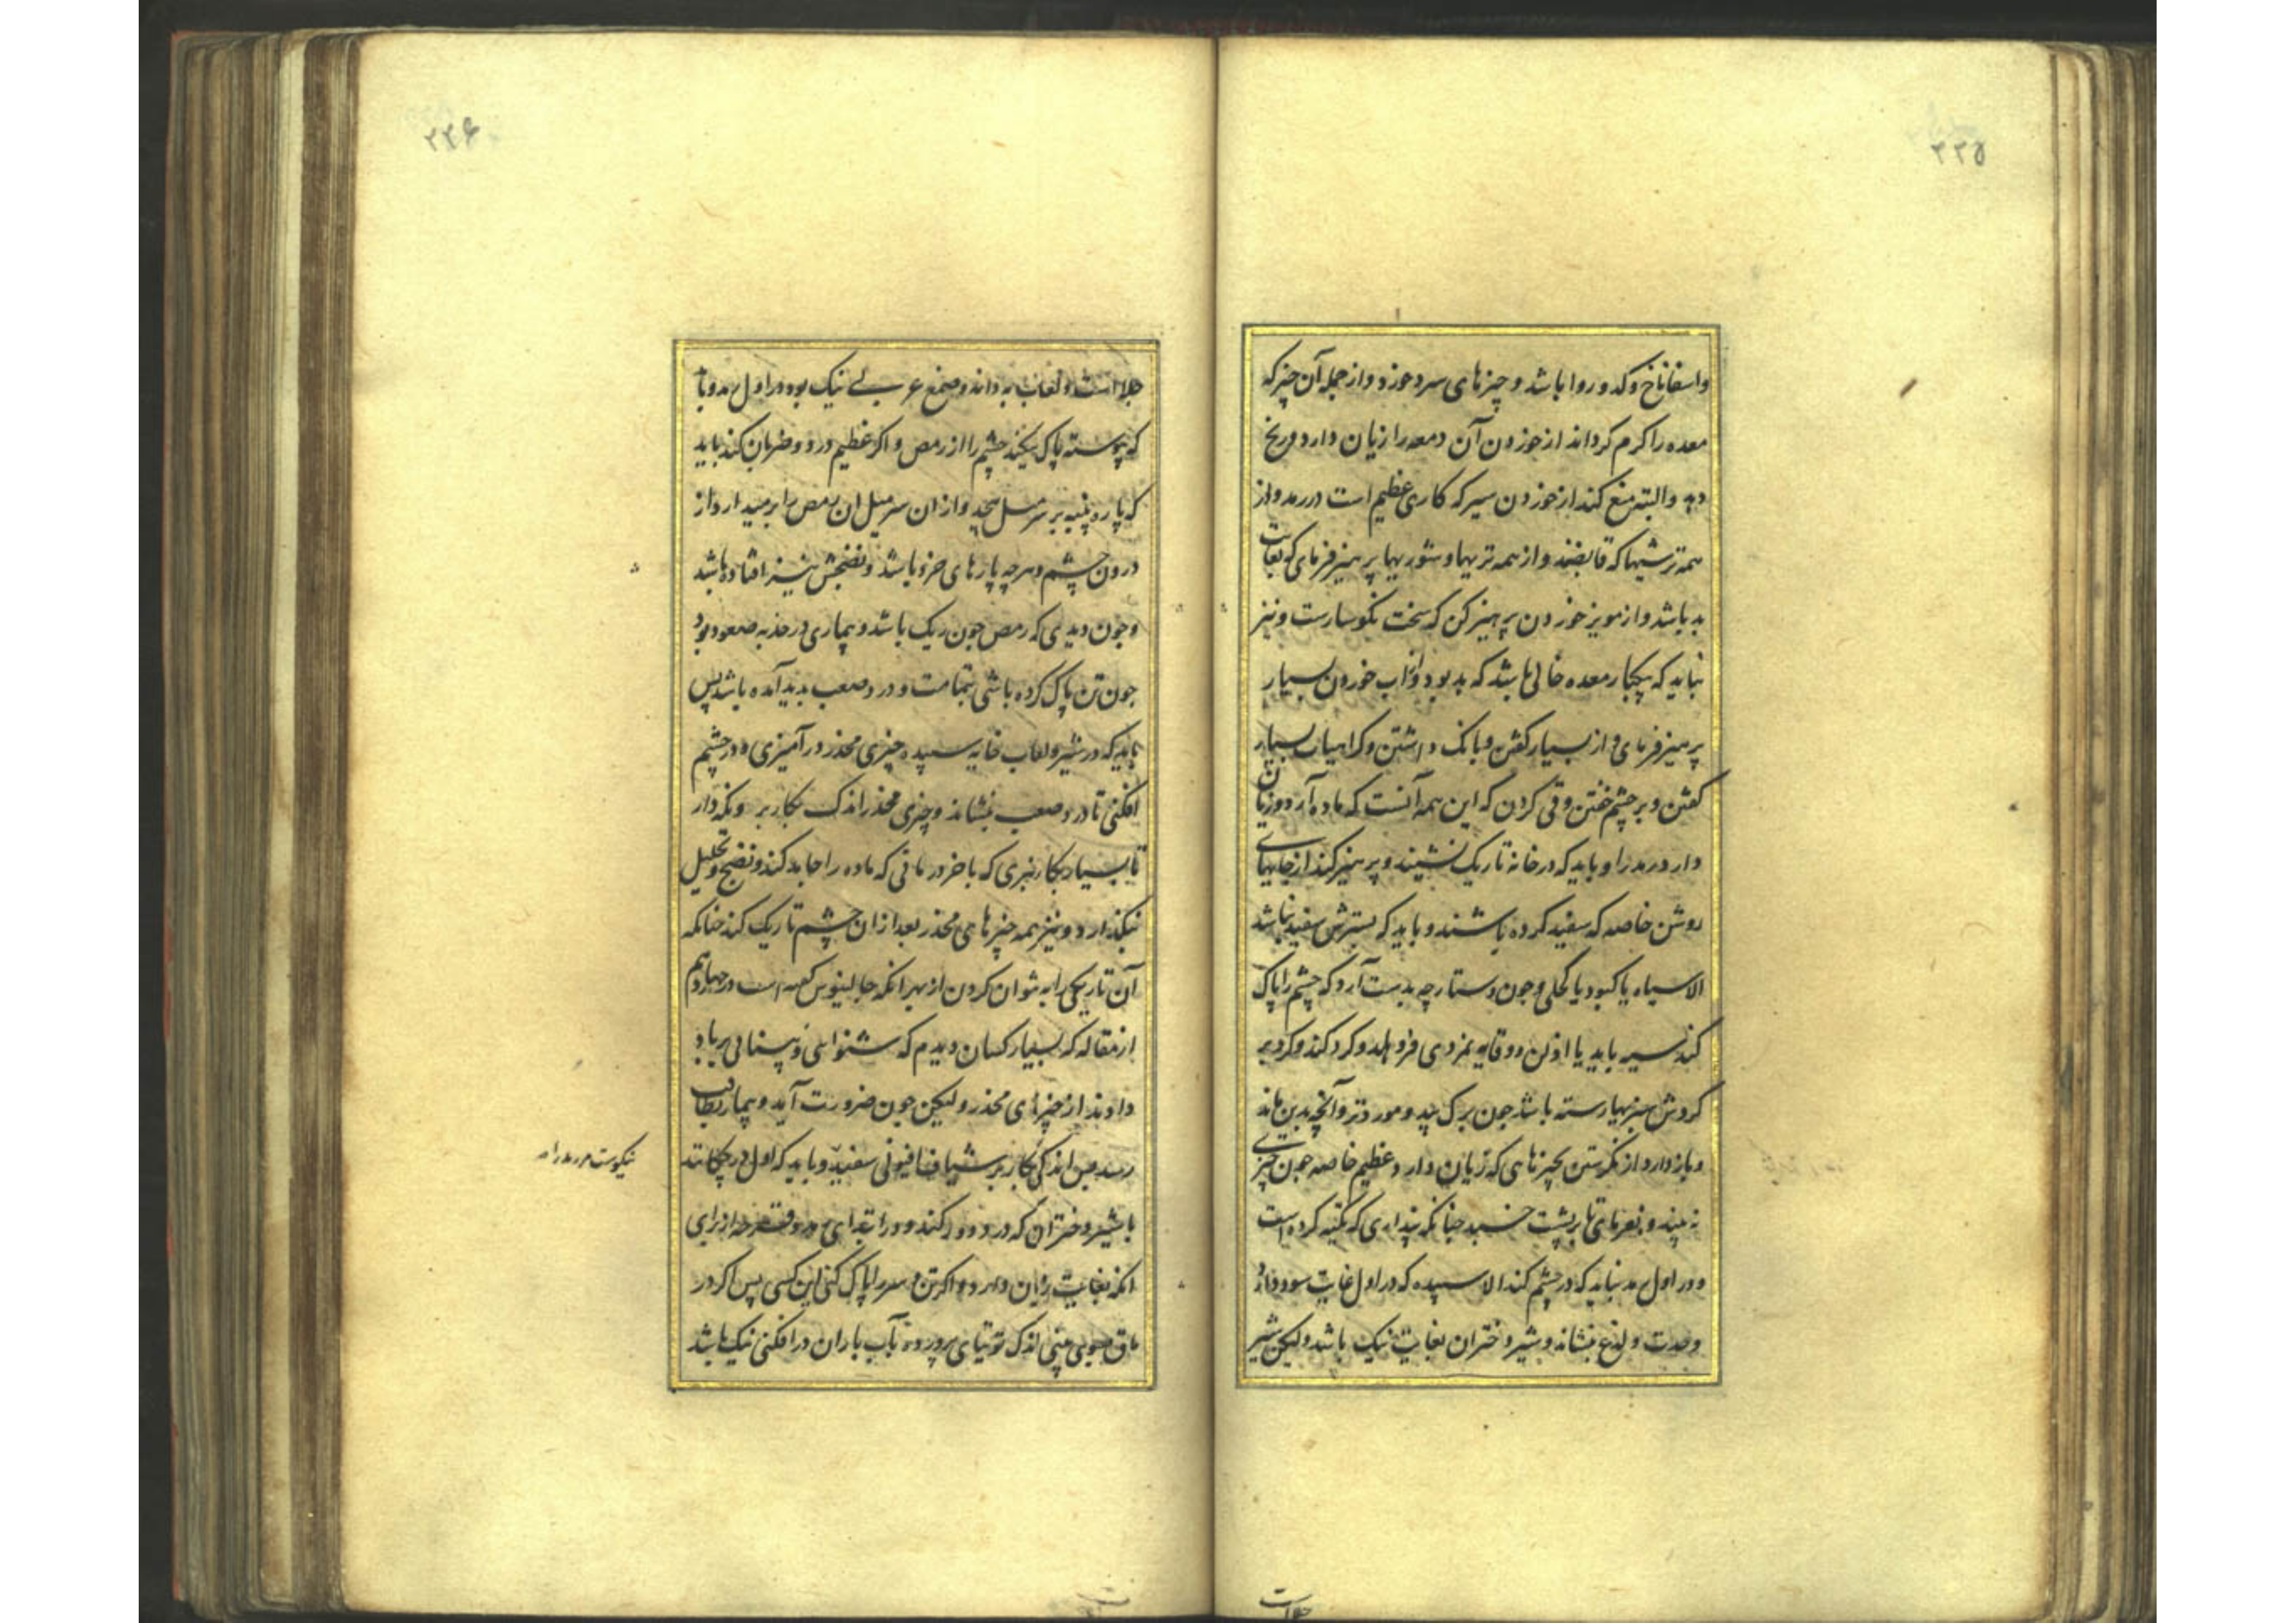 ۲۳۵
واسفاناخ و کدو روا باشد و چیزهای سرد خورد و از جمله آن چیز که
معده را کرم کرداند از خوردن آن دمعه را زیان دارد و رنج
دهد والبته منع کند از خوردن سیر که کاری عظیم است در رمد و از
همه ترشیها که قابضند و از همه تریها و شوریها پرهیز فرمای که بغایت
بد باشد و از مویز خوردن پرهیز کن که سخت نکوسارست و نیز
نباید که هیچ معده خالی باشد که بد بود و آب خوردن بسیار
پرهیز فرمای و از بسیار کفتن و بانک داشتن و کراهیات بسیار
کفتن و بر چشم خفتن و قی کردن که این همه آنست که ماده آرد و زیان
دارد رمد را و باید که در خانه تاریک نشیند و پرهیز کند از جایهای
روشن خاصه که سفید کرده باشند و باید که بسترش سفید نباشد
الا سیاه یا کبود یا کحلی و چون دستارچه بدست آرد که چشم را پاک
کند باید یا
کردش سبزیها رسته باشد چون برک بید و مورد تر و آنچه بدین ماند
و باز دارد از نکرستن بچیزهای که زیان دارد عظیم خاصه چون چیزی
نه بیند و بفرمای تا بر پشت خسبد چنانکه پنداری که تکیه کرده است
و در اول رمد نباید که در چشم کند الا سپیده که در اول غایت سود دارد
وحدت و لذع بنشاند و شیر دختران بغایت نیک باشد ولیکن شیر
جلاست
۲۳۶
جلاست و لعاب به دانه و صمغ عربی نیک بود در اول رمد و باید
که پیوسته پاک میکند چشم را از رمص و اکر عظیم درد و ضربان کند باید
که پاره پنبه بر سر میل پیچد و از ان سر میل ان رمص را برمیدارد از
درون چشم و هرچه پارهای خرد باشد و نضجش نیز افتاده باشد
و چون دیدی که رمص چون ریک باشد و بیماری در حد صعود بود
چون تن پاک کرده باشی بتمامت و درد صعب بدید آمده باشد پس
باید که در شیر و لعاب خایه سپیده چیزی مخدر درآمیزی و در چشم
افکنی تا درد صعب بنشاند و چیزی مخدر اندک بکار بر و نکه دار
تا بسیار بکار نبری که باخر درمانی که ماده را جامد کند و نضج و تحلیل
نکذارد و نیز همه چیزهای مخدر بعد از ان چشم تاریک کند چنانکه
آن تاریکی را به نتوان کردن از بهر آنکه جالینوس کفته است در چهاردهم
از مقاله که بسیار کسان دیدم که شنوائی و بینائی برباد
دادند از چیزهای مخدر ولیکن چون ضرورت آید و بیمار بطاقت
رسد اندکی بکار بر شیاف افیونی سفید و باید که اول در چکانند
با شیر دختران که درد دور کند و در ابتدای
آنکه بغایت زیان دارد و اکر تن و سر را پاک کنی این کسی پس اکر در
ماق بینی اندک توتیای پرورده بآب باران در افکنی نیک باشد
نیکوست